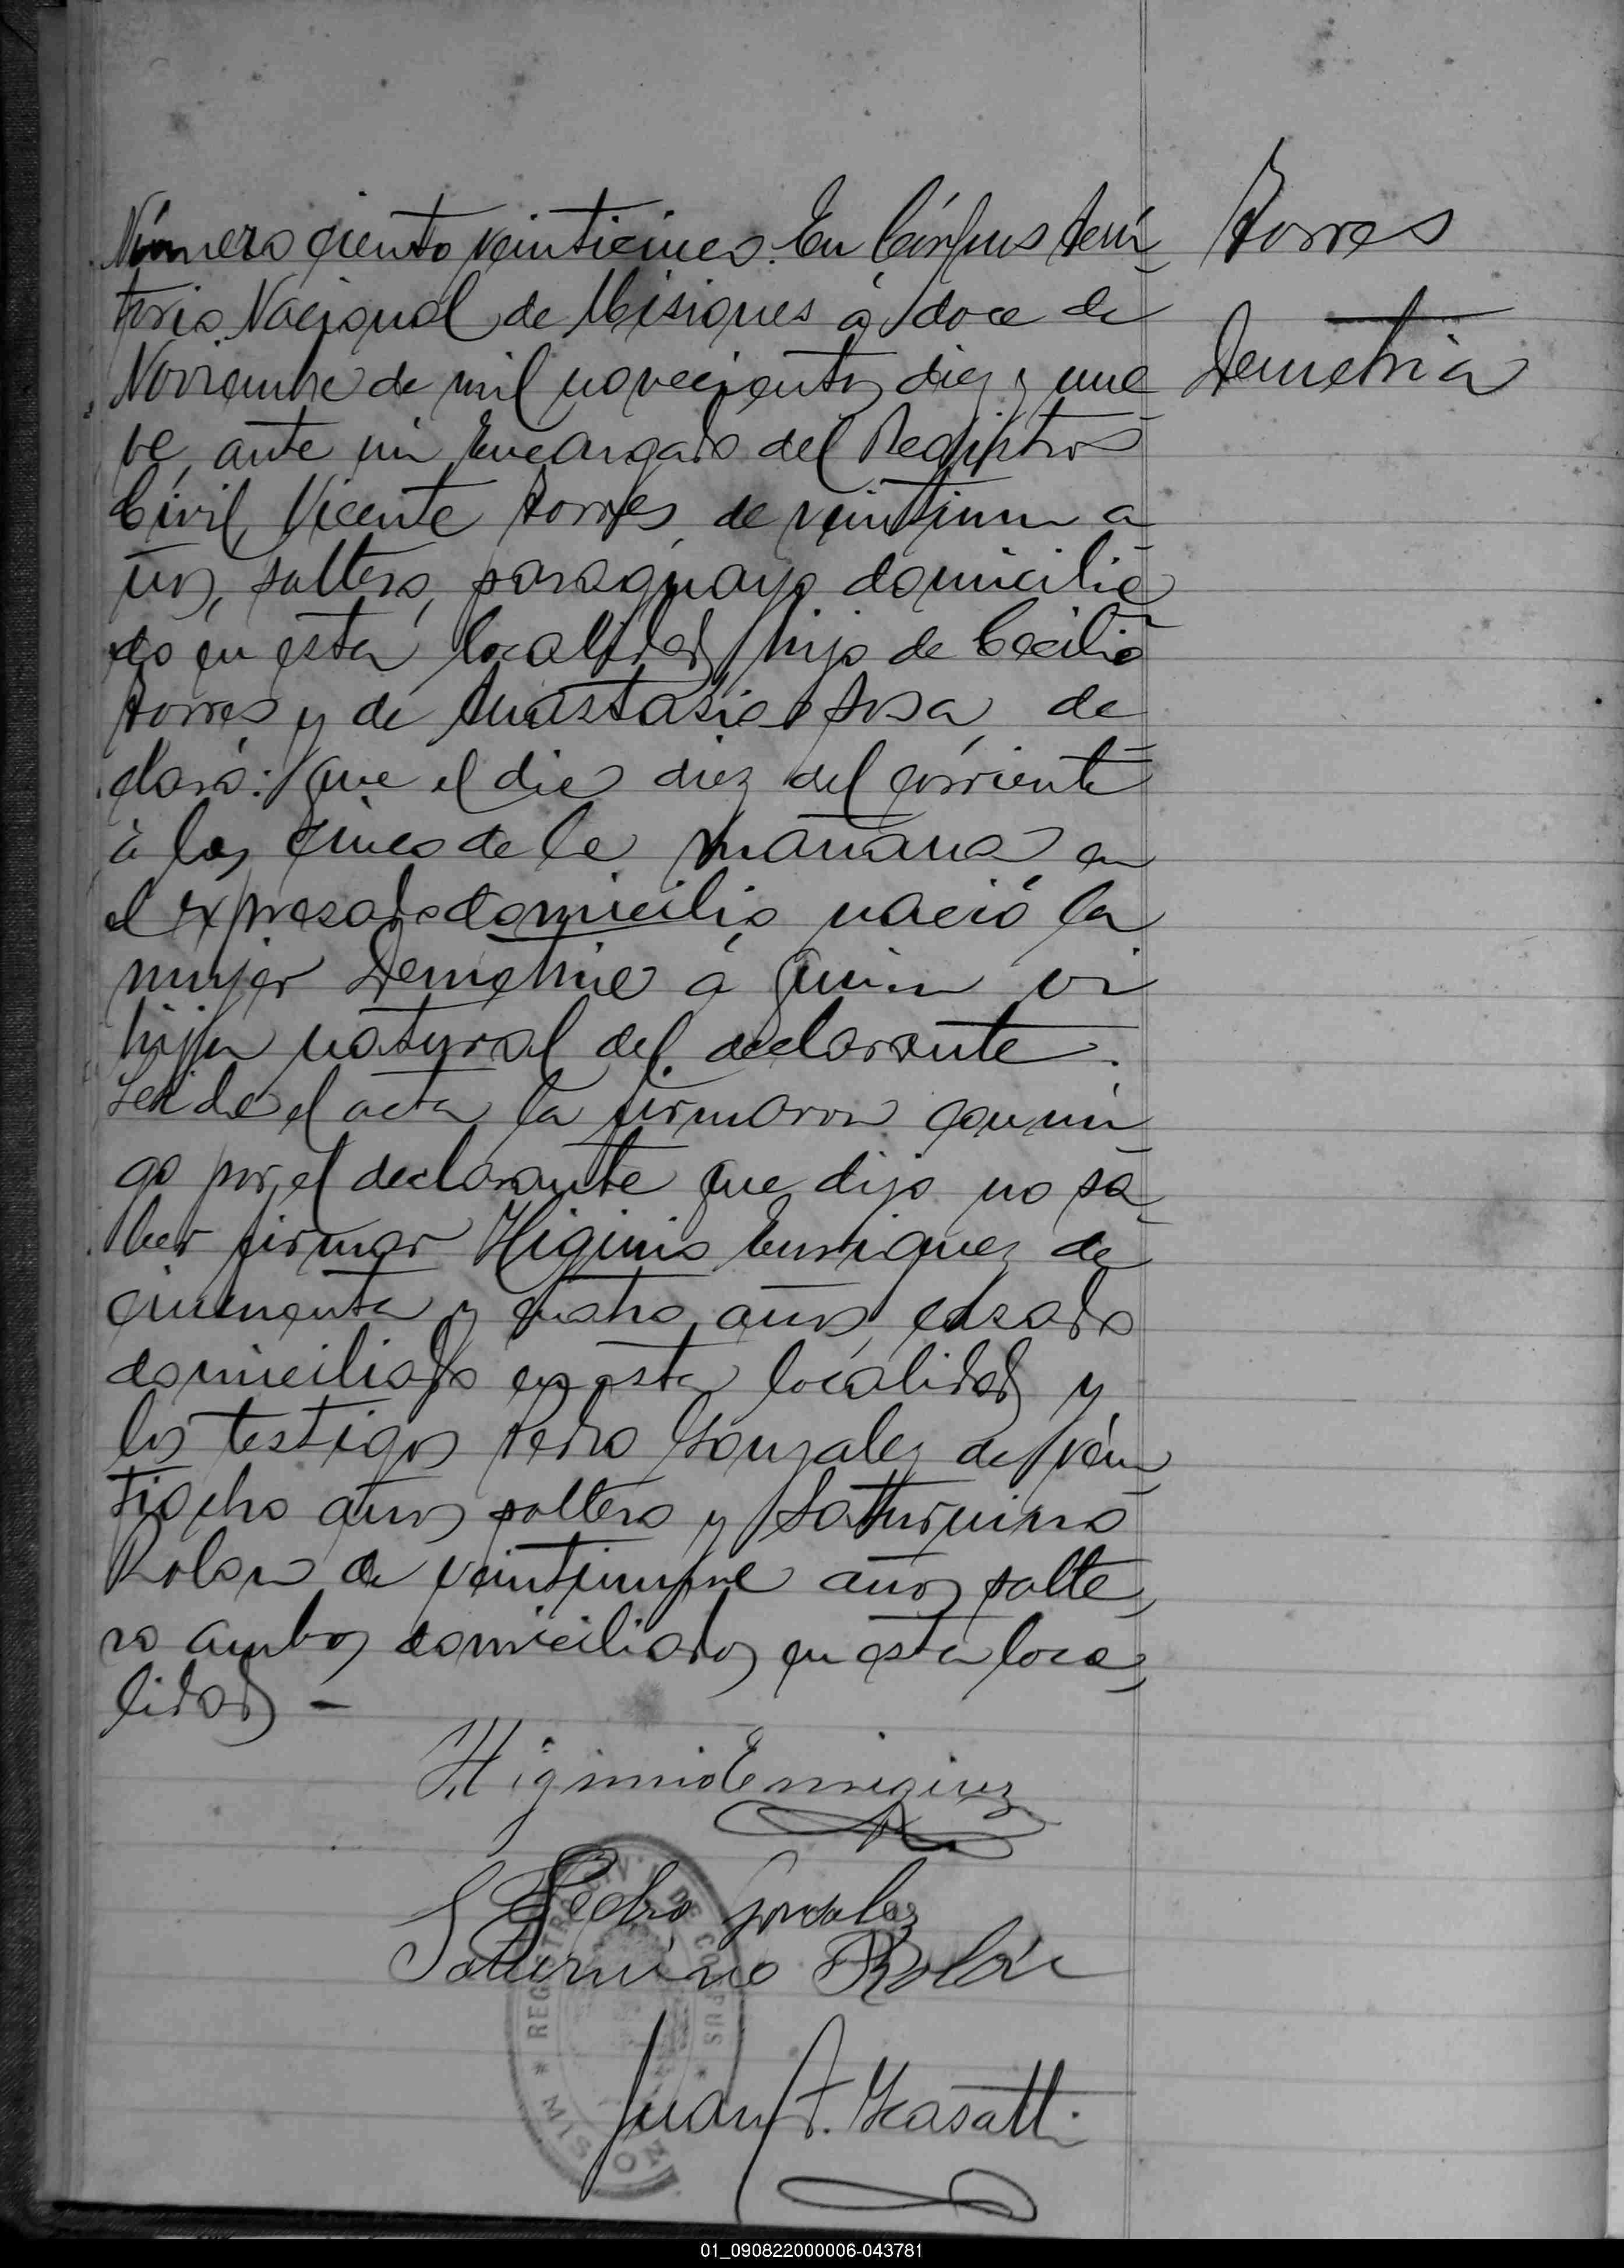 Número ciento veinticinco. En Córpus Terri
torio Nacional de Misiones á doce de
Noviembre de mil novecientos diez y nue
ve, ante mi Encargado del Registro
Civil, Vicente Torres, de veintiun a
ños, soltero, paraguayo domicilia
do en esta localidad, hijo de Cecilio
Torres y de Anastasia Sosa, de
claró: Que el dia diez del corriente
á las cinco de la mañana, en
el expresado domicilio nació la
mujer Demetria á quien vi
hija natural del declarante.
Leida el acta la firmaron conmi
go por el declarante que dijo no sa
ber firmar Higinio Enriquez de
cincuenta y cuatro años, casado
domiciliado en esta localidad y
los testigos Pedro Gonzalez de vein
tiocho años soltero y Satturnino
Rolon de veintinueve años solte
ro ambos domiciliados en esta loca
lidad –
Torres
Demetria
Higinio Enriquez
Pedro Gonzalez
Saturnino Rolón
Juan F.
REGISTRO CIVIL DE CORPUS
* MISIONES *
01_090822000006-043781